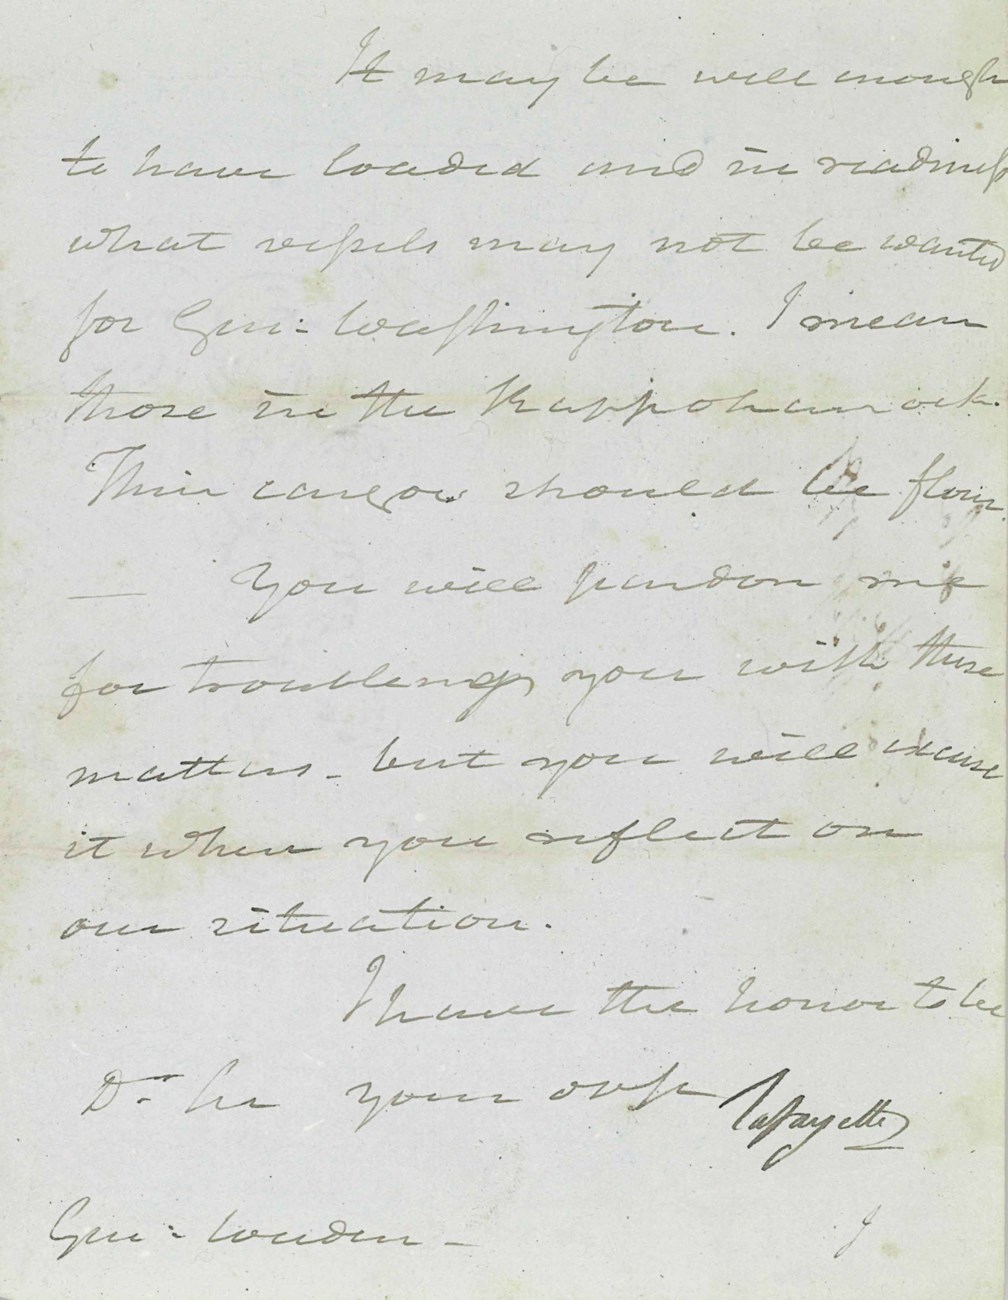 It may be well enough
to have loaded and in readiness
what vessels may not be wanted
for Gen: Washington. I mean
those in the Rappohannock.
Thier cargoe should be flour.
— You will pardon me
for troubleing you with these
matters - but you will excuse
it when you reflect on
our situation.
I have the honor to be
Dr. Sir your
Lafayette
Gen: Weedon -